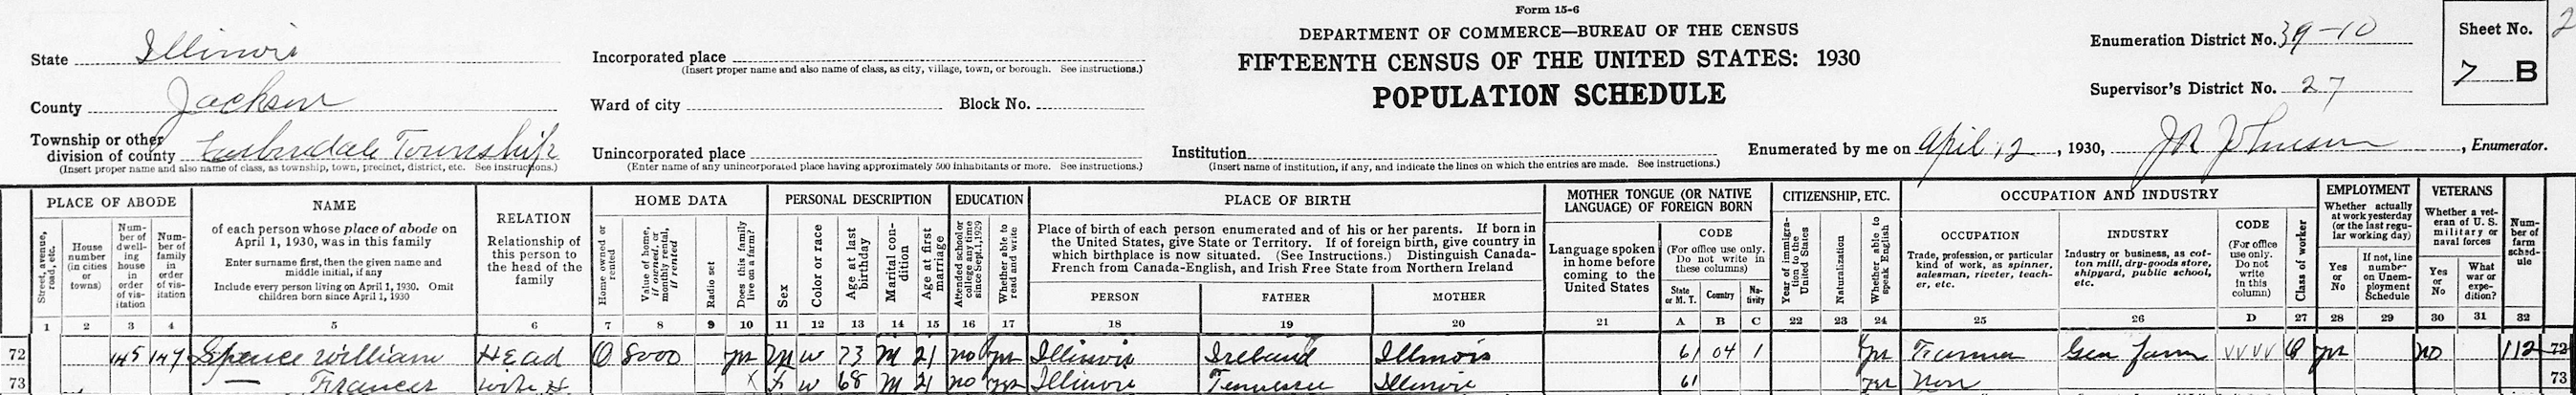 Form 15-6
DEPARTMENT OF COMMERCE—BUREAU OF THE CENSUS
FIFTEENTH CENSUS OF THE UNITED STATES: 1930
POPULATION SCHEDULE
State Illinois
County Jackson
Township or other division of county Township
(Insert proper name and also name of class, as township, town, precinct, district, etc. See instructions.)
Incorporated place
(Insert proper name and also name of class, as city, village, town, or borough. See instructions.)
Ward of city Block No.
Unincorporated place
(Enter name of any unincorporated place having approximately 500 inhabitants or more. See instructions.)
Institution
(Insert name of institution, if any, and indicate the lines on which the entries are made. See instructions.)
Enumeration District No. 39-10
Supervisor's District No. 27
Sheet No.
7 B
2
Enumerated by me on April 12, 1930, J R Johnson, Enumerator.
PLACE OF ABODE
Street, avenue, road, etc.
House number (in cities or towns)
Number of dwelling house in order of visitation
Number of family in order of visitation
NAME
of each person whose place of abode on
April 1, 1930, was in this family
Enter surname first, then the given name and
middle initial, if any
Include every person living on April 1, 1930. Omit
children born since April 1, 1930
RELATION
Relationship of this person to the head of the family
HOME DATA
Home owned or rented
Value of home, if owned, or monthly rental, if rented
Radio set
Does this family live on a farm?
PERSONAL DESCRIPTION
Sex
Color or race
Age at last birthday
Marital condition
Age at first marriage
EDUCATION
Attended school or college any time since Sept. 1, 1929
Whether able to read and write
PLACE OF BIRTH
Place of birth of each person enumerated and of his or her parents. If born in
the United States, give State or Territory. If of foreign birth, give country in
which birthplace is now situated. (See Instructions.) Distinguish Canada-
French from Canada-English, and Irish Free State from Northern Ireland
PERSON FATHER MOTHER
MOTHER TONGUE (OR NATIVE LANGUAGE) OF FOREIGN BORN
Language spoken in home before coming to the United States
CODE
(For office use only. Do not write in these columns)
State or M. T. Country Nativity
CITIZENSHIP, ETC.
Year of immigration to the United States
Naturalization
Whether able to speak English
OCCUPATION AND INDUSTRY
OCCUPATION
Trade, profession, or particular kind of work, as spinner, salesman, riveter, teacher, etc.
INDUSTRY
Industry or business, as cotton mill, dry-goods store, shipyard, public school, etc.
CODE
(For office use only. Do not write in this column)
Class of worker
EMPLOYMENT
Whether actually at work yesterday (or the last regular working day)
Yes or No
If not, line number on Unemployment Schedule
VETERANS
Whether a veteran of U. S. military or naval forces
Yes or No
What war or expedition?
Number of farm schedule
1 2 3 4 5 6 7 8 9 10 11 12 13 14 15 16 17 18 19 20 21 A B C 22 23 24 25 26 D 27 28 29 30 31 32
72 145 147 Spence William Head O 8000 yes M w 73 M 21 no yes Illinois Ireland Illinois 61 04 1 yes Farmer Gen farm VVVV O yes no 112 72
73 — Frances Wife H X F w 68 M 21 no yes Illinois Tennessee Illinois 61 yes Non 73